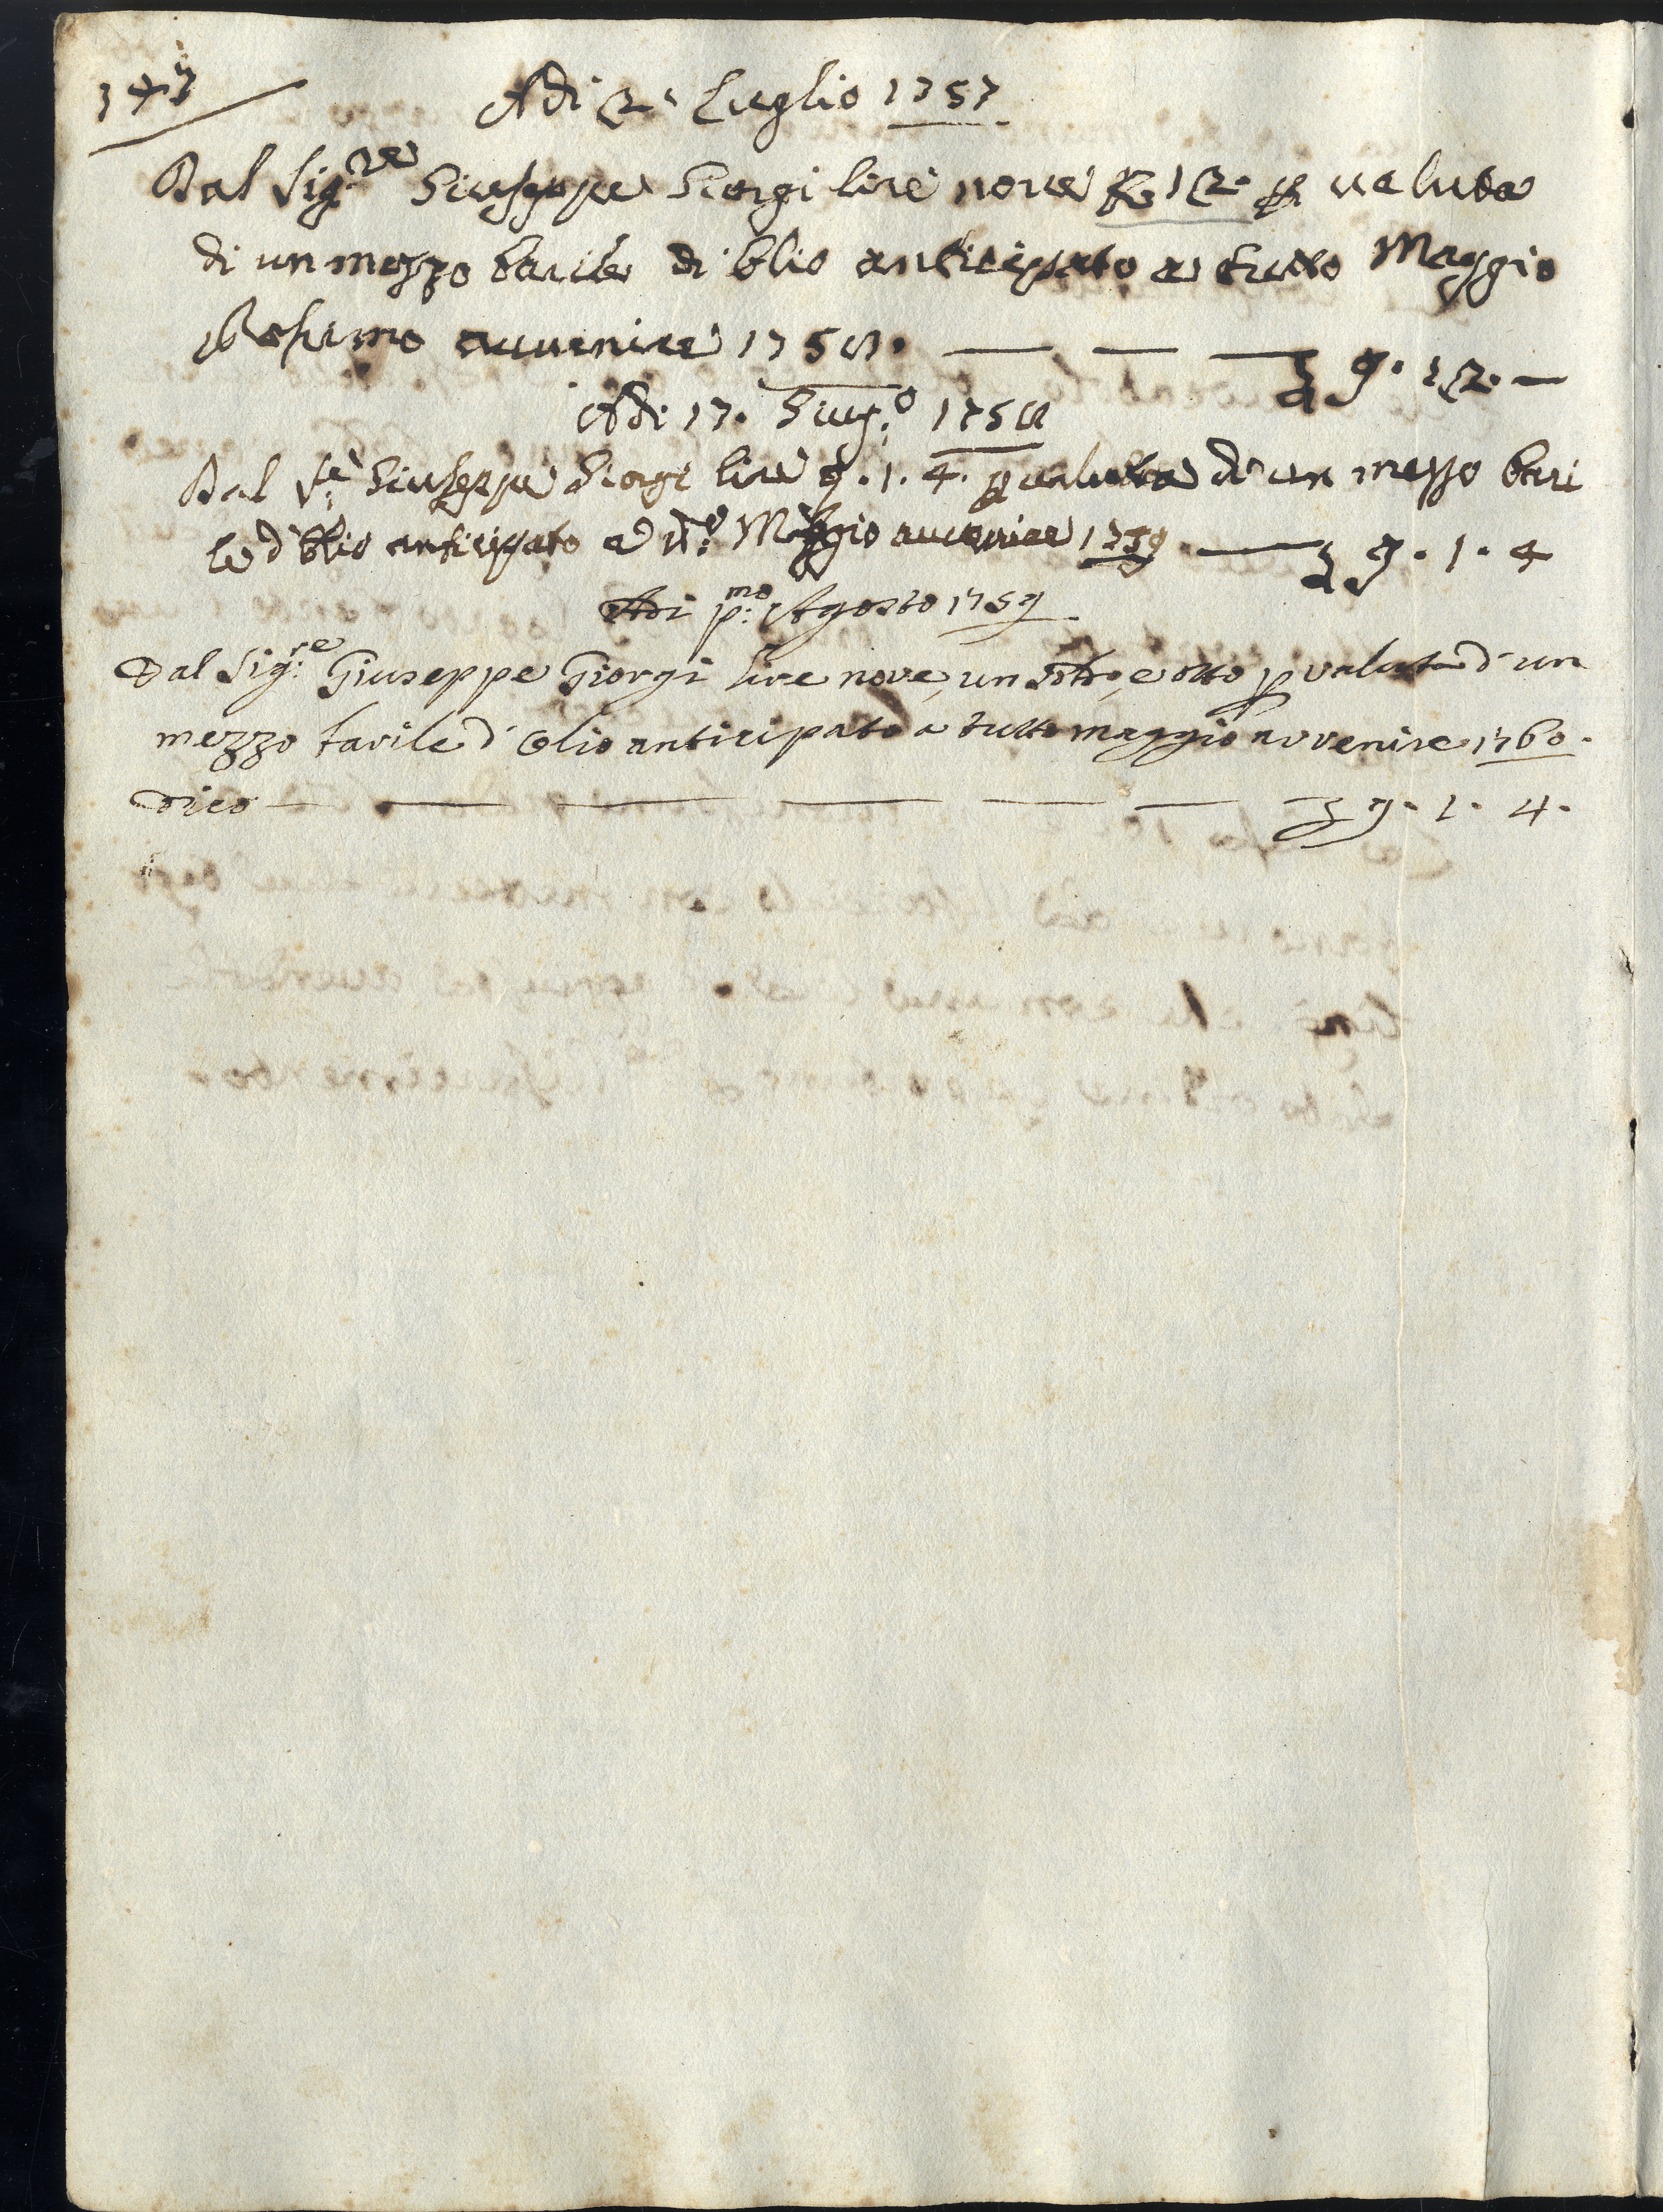 143
Adi 2. Luglio 1757
Dal Sig.re Giuseppe Giorgi lire nove £ 12. p valuta
di un mezzo barile di Olio anticipato a tutto Maggio
Prossimo avvenire 1758. — — — £ 9. 12. —
Adi 17. Giug.o 1758
Dal S.e Giuseppe Giorgi lire 9. 1. 4. p valuta di un mezzo bari
le d'Olio anticipato a Maggio avvenire 1759 — £ 9. 1. 4
Adi p:mo Agosto 1759
Dal Sig:re Giuseppe Giorgi lire nove, un e otto p valuta d'un
mezzo barile d'Olio anticipato a tutto maggio avvenire 1760.
Dico — — — — — — — £ 9. 1. 4.